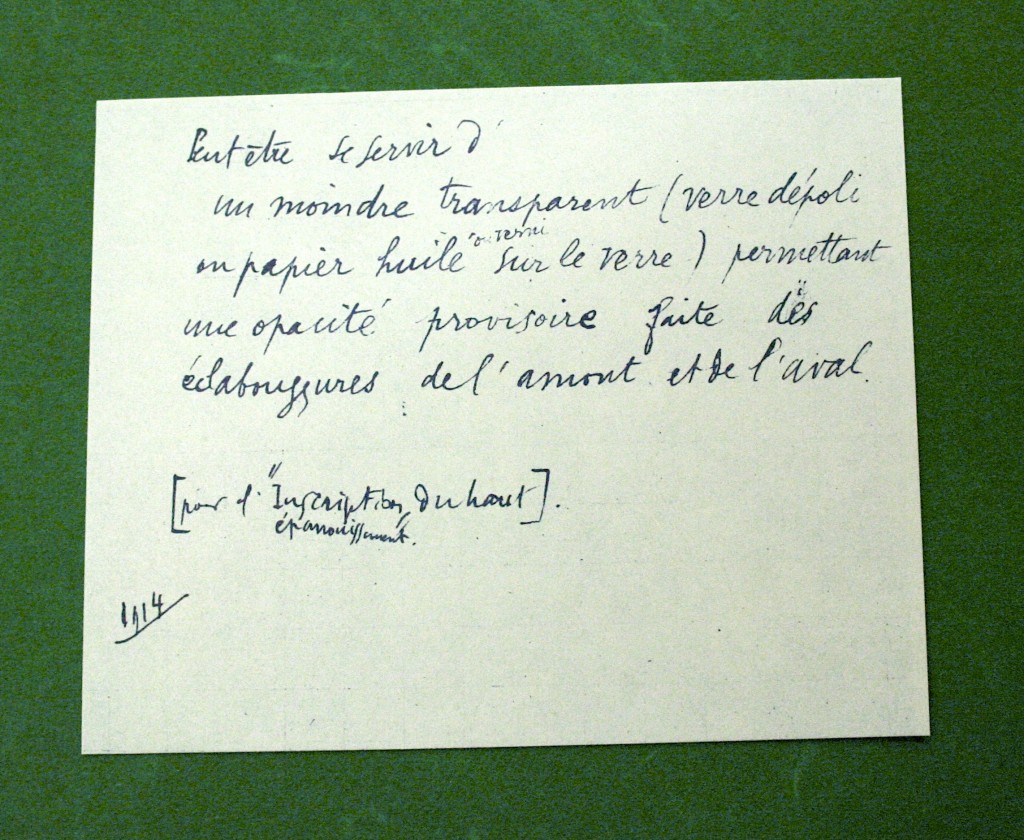 Peut être se servir d'
un moindre transparent (verre dépoli
ou verni
ou papier huilé sur le verre) permettant
une opacité provisoire faite des
éclaboussures de l'amont et de l'aval.
[pour l'"Inscription du haut].
épanouissement".
1914